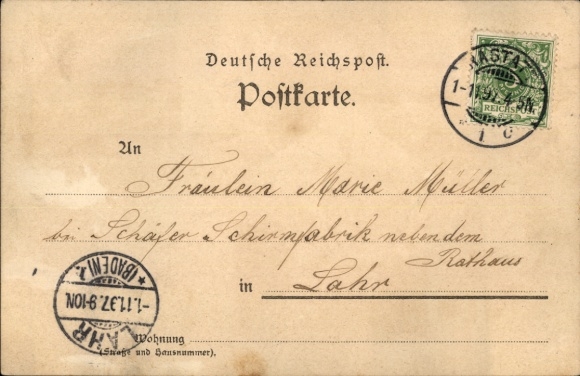 Deutsche Reichspost.
Postkarte.
RASTATT
1-11.97. 4-5N.
1 c
REICHSPOST
An
Fräulein Marie Müller
bei Schäfer Schirmfabrik neben dem
Rathaus
in Lahr
LAHR
-1.11.97. 9-10N.
*(BADEN)1.*
Wohnung
(Straße und Hausnummer).